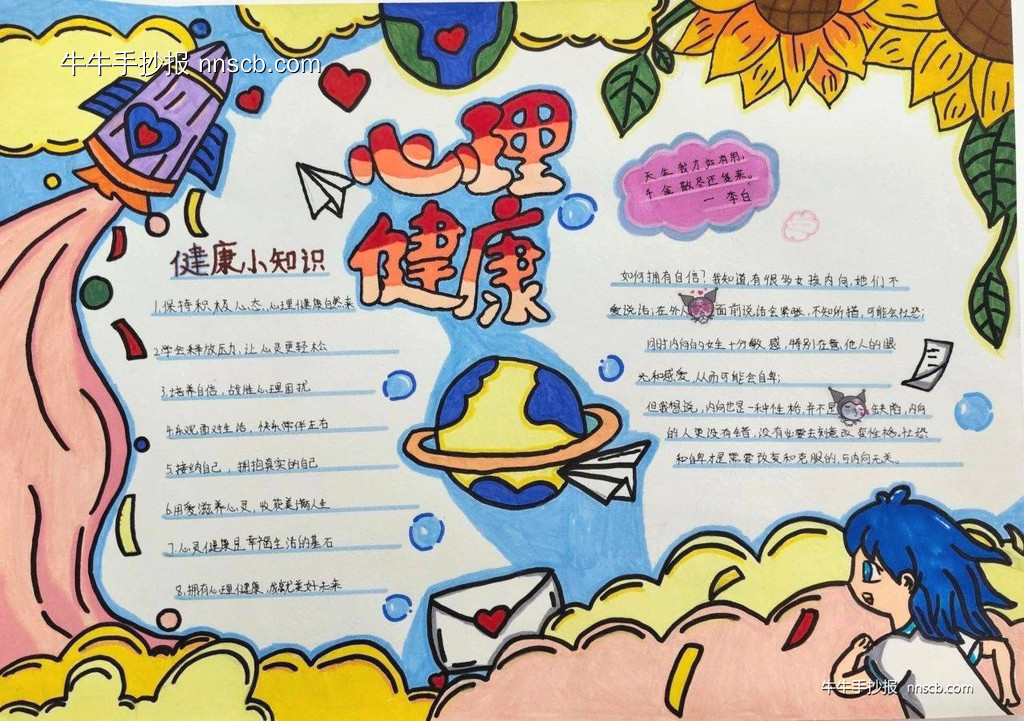 牛牛手抄报 nnscb.com
心理
健康
天生我才必有用，
千金散尽还复来。
— 李白
健康小知识
1.保持积极心态,心理健康自然来
2.学会释放压力,让心灵更轻松
3.培养自信,战胜心理困扰
4.乐观面对生活,快乐常伴左右
5.接纳自己，拥抱真实的自己
6.用爱滋养心灵,收获美满人生
7.心灵健康是幸福生活的基石
8.拥有心理健康,成就美好未来
如何拥有自信？我知道,有很多女孩内向,她们不
爱说话;在外人面前说话会紧张,不知所措,可能会社恐;
同时内向的女生十分敏感,特别在意他人的眼
光和感受,从而可能会自卑;
但我想说,内向也是一种性格,并不是缺陷,内向
的人更没有错,没有必要去刻意改变性格,社恐
和自卑才是需要改变和克服的,与内向无关。
牛牛手抄报 nnscb.com